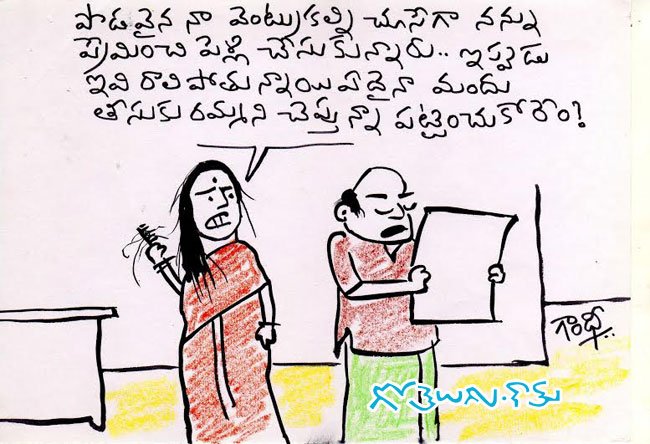 పొడవైన నా వెంట్రుకల్ని చూసేగా నన్ను
ప్రేమించి పెళ్లి చేసుకున్నారు.. ఇప్పుడు
ఇవి రాలిపోతున్నాయి ఏదైనా మందు
తీసుకురమ్మని చెప్తున్నా పట్టించుకోరేం!
గాంధీ..
గోతెలుగు.కామ్